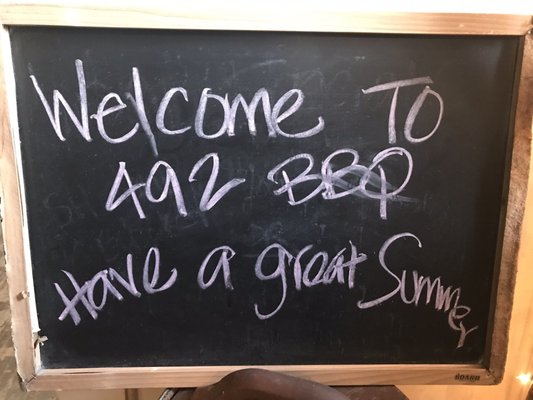 Welcome To
492 BBQ
Have a great Summer
BOARD